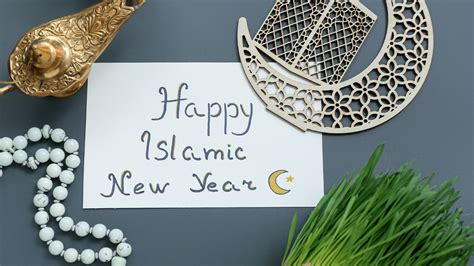 Happy
Islamic
New Year